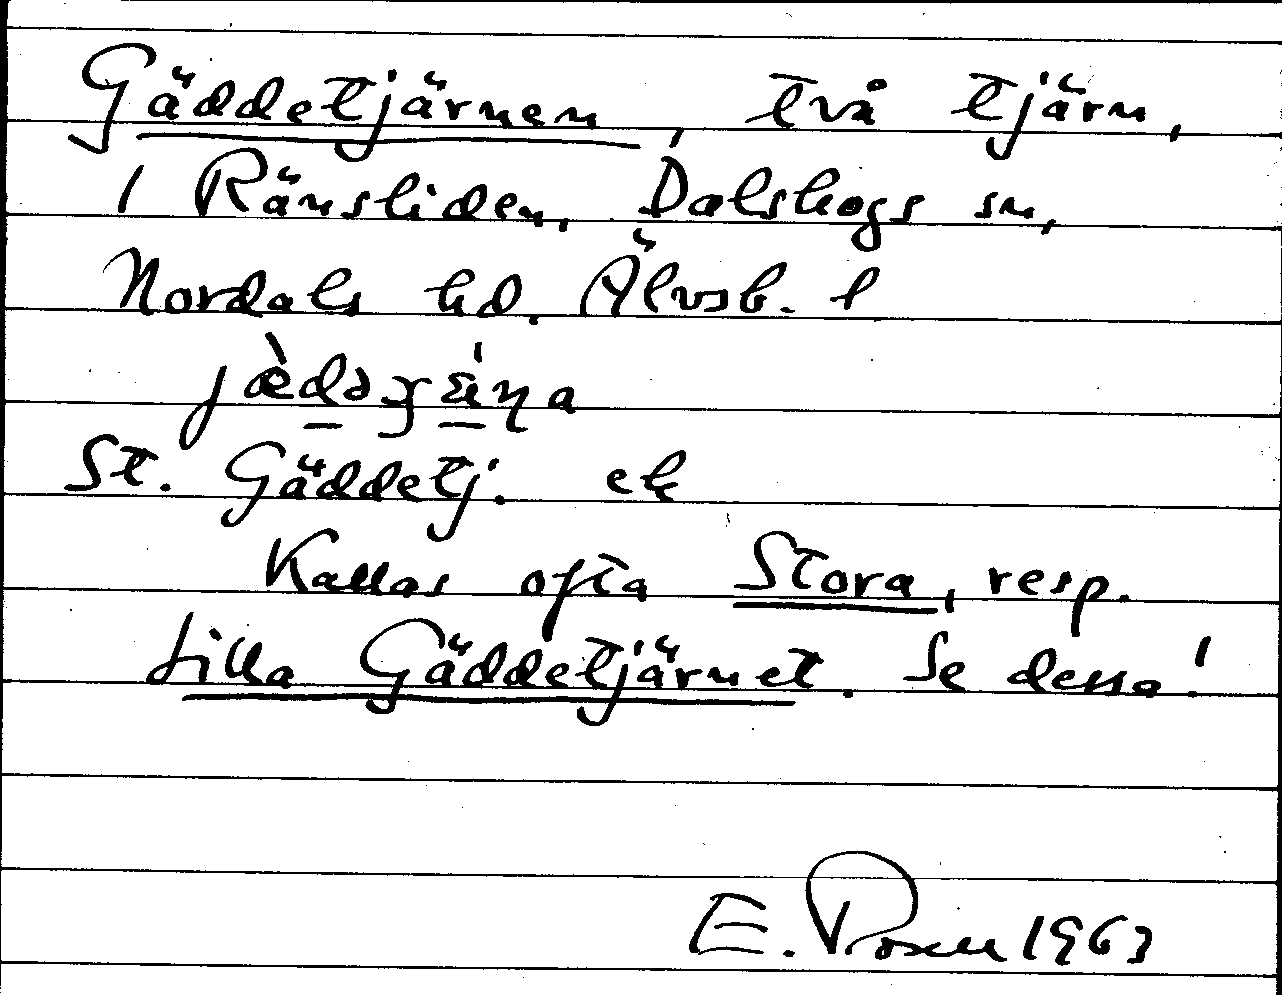 Gäddetjärnen, två tjärn,
i Ränsliden, Dalskogs sn,
Nordals hd. Älvsb. l
St. Gäddetj. ek
Kallas ofta Stora, resp.
Lilla Gäddetjärnet. Se dessa!
E. Rosen 1963